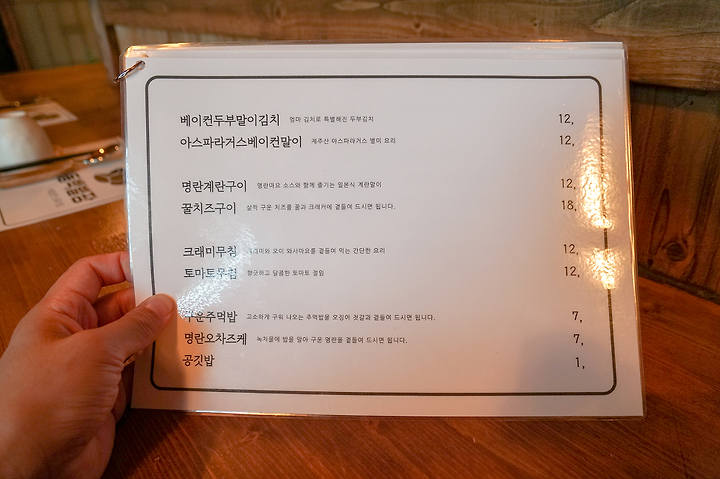 베이컨두부말이김치 엄마 김치로 특별해진 두부김치 12,
아스파라거스베이컨말이 제주산 아스파라거스 별미 요리 12,
명란계란구이 명란마요 소스와 함께 즐기는 일본식 계란말이 12,
꿀치즈구이 살짝 구운 치즈를 꿀과 크래커에 곁들여 드시면 됩니다. 18,
크래미무침 오이 와사마요를 곁들여 먹는 간단한 요리 12,
토마토 향긋하고 달콤한 토마토 절임 12,
구운주먹밥 고소하게 구워 나오는 주먹밥을 오징어 젓갈과 곁들여 드시면 됩니다. 7,
명란오차즈케 녹차물에 밥을 말아 구운 명란을 곁들여 드시면 됩니다. 7,
공깃밥 1,